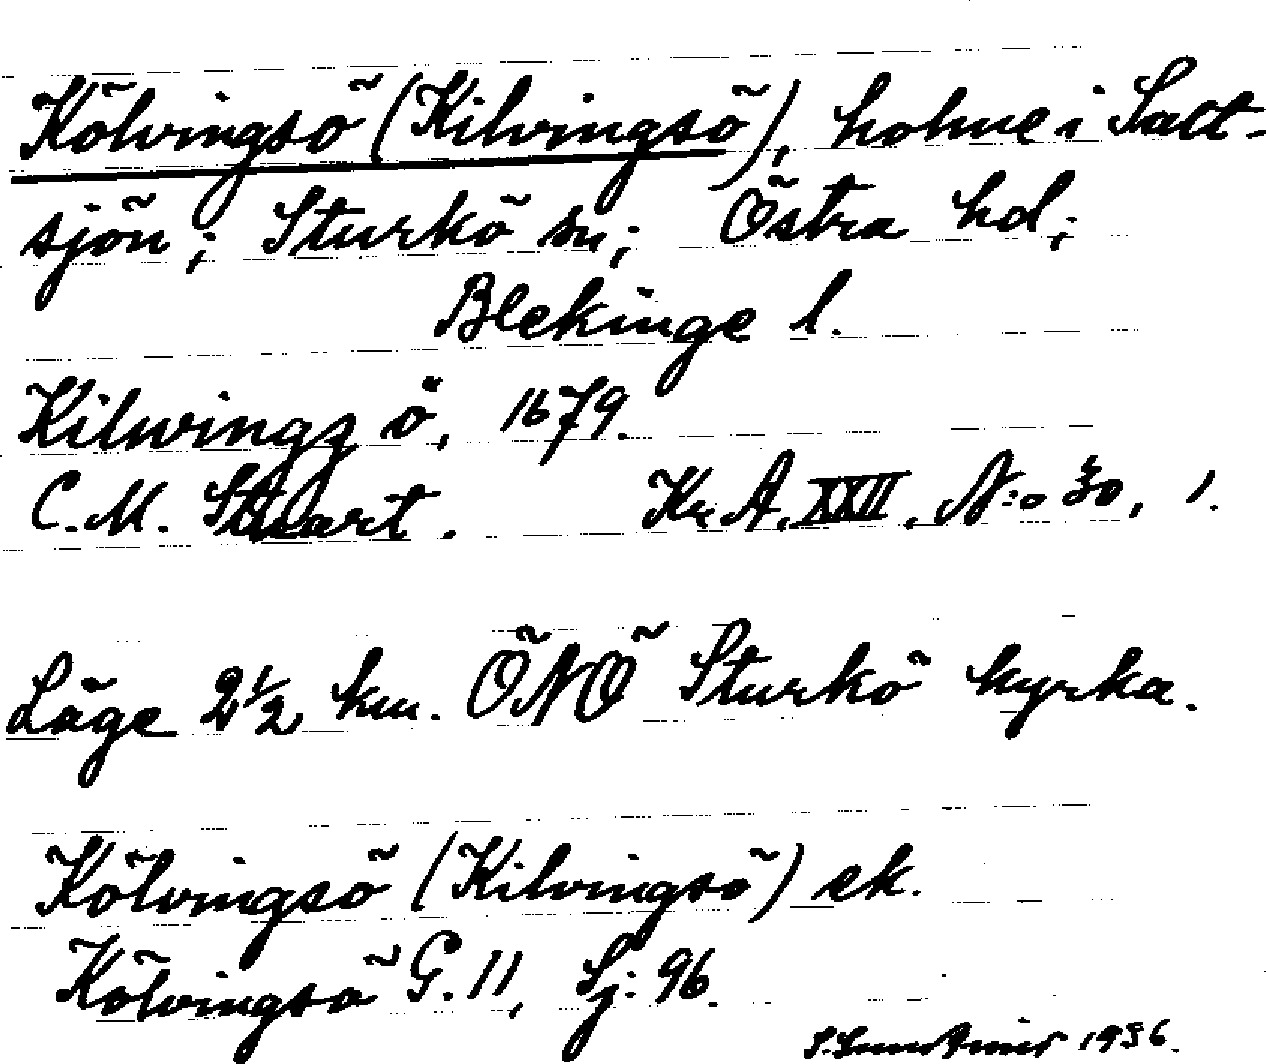 Kölvingsö (Kilvingsö), holme i Salt-
sjön; Sturkö sn; Östra hd;
Blekinge l.
Kilwingz ö, 1679.
C. M. Stuart. Kr. A. XXII, N:o 30, 1.
Läge 2 1/2 km. ÖNÖ Sturkö kyrka.
Kölvingsö (Kilvingsö) ek.
Kölvingsö G. 11, Sj: 96.
1936.